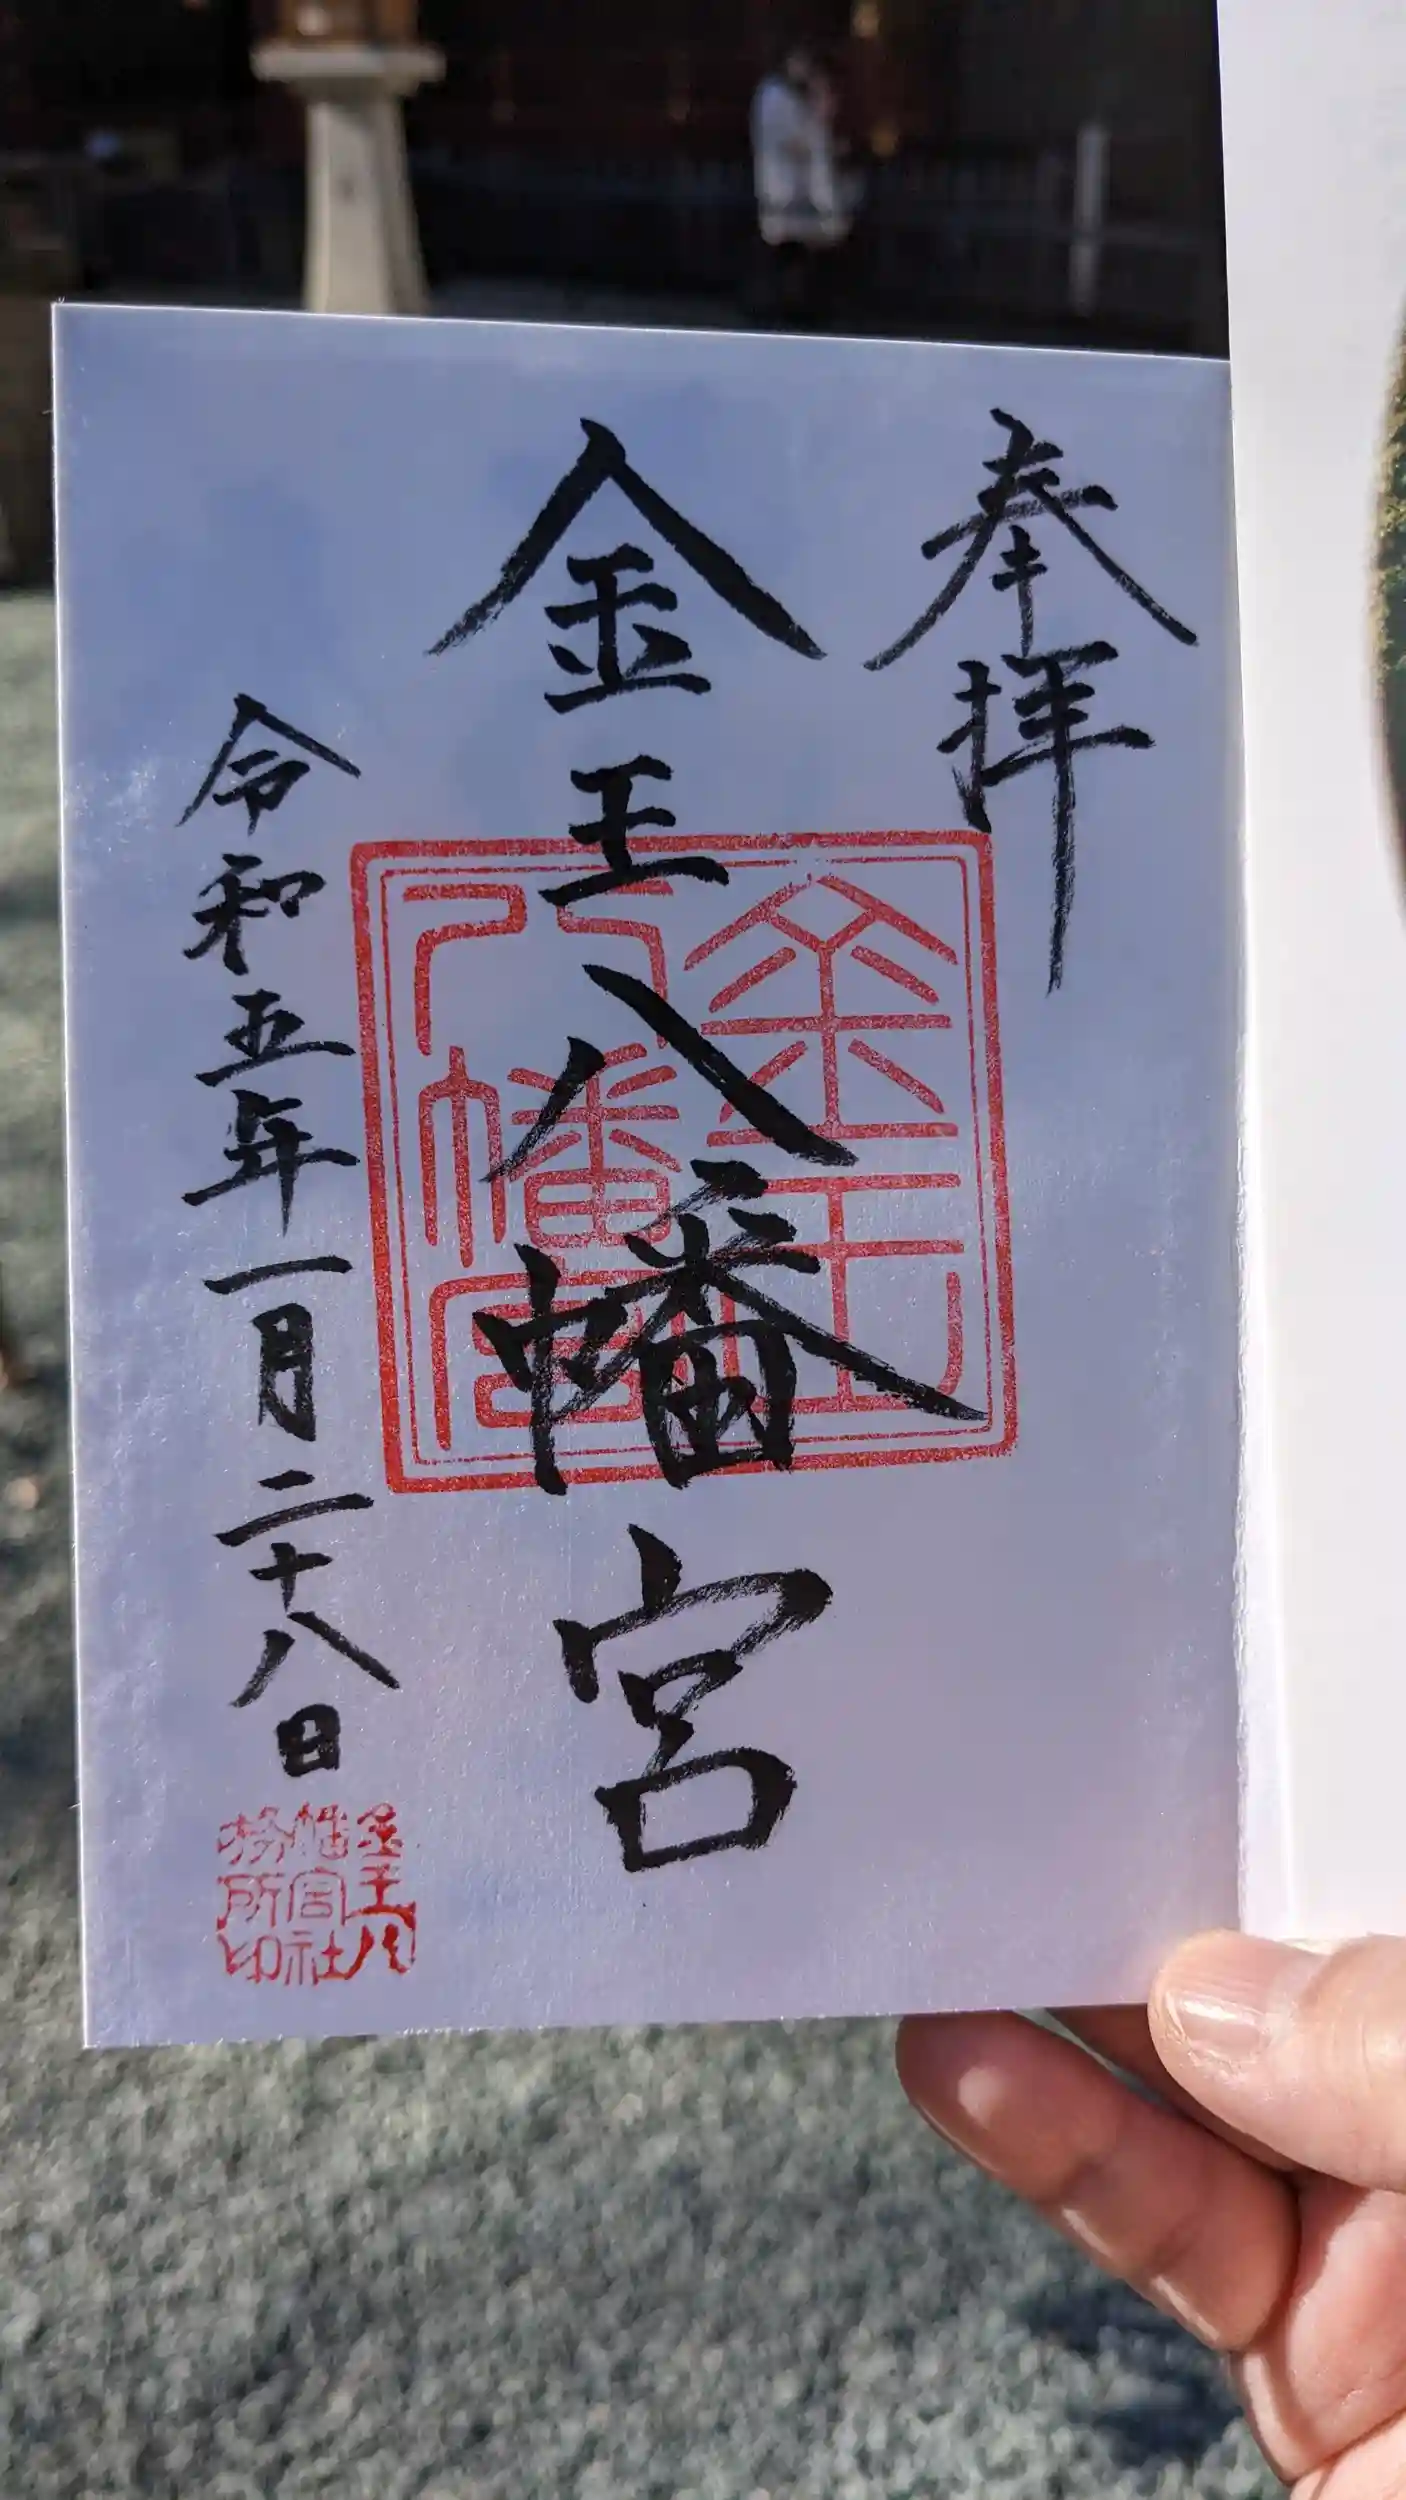 奉拝
金王八幡宮
金王八幡宮
令和五年一月二十八日
金王八
幡宮社
務所印